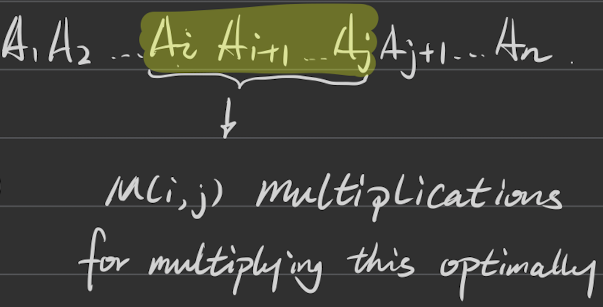 A₁ A₂ ... Aᵢ Aᵢ₊₁ ... Aⱼ Aⱼ₊₁ ... Aₙ .
M(i,j) multiplications
for multiplying this optimally